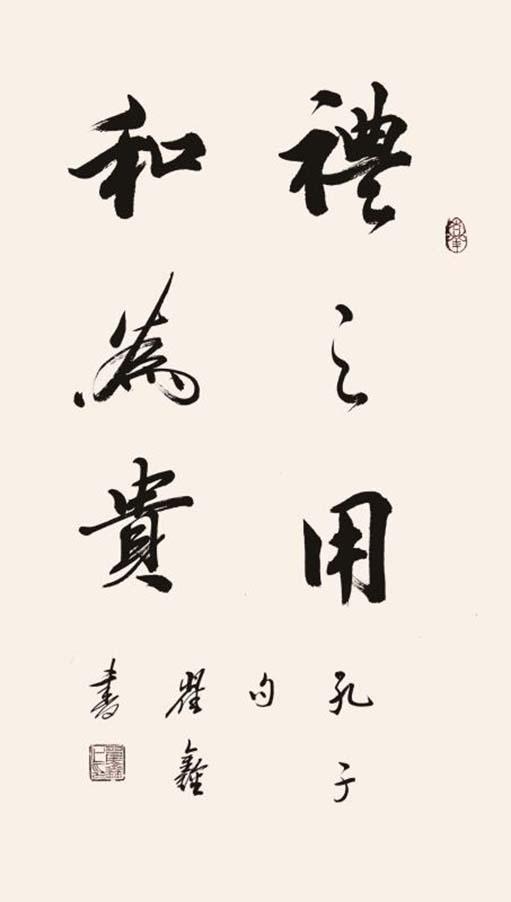 禮之用
和為貴
孔子
句
瞿鑫
書